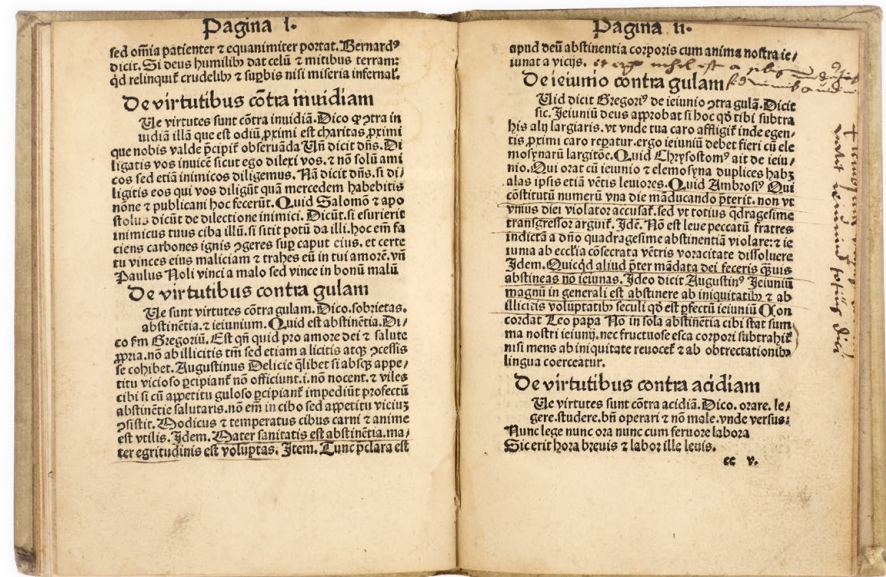 Pagina l.
sed om̃ia patienter ⁊ equanimiter portat. Bernard⁹
dicit. Si deus humilib⁹ dat celũ ⁊ mitibus terram:
q̃d relinquit̃ crudelib⁹ ⁊ suꝑbis nisi miseria infernal̃.
De virtutibus cõtra inuidiam
Ue virtutes sunt cõtra inuidiã. Dico ꝙ ↄtra in
uidiã illã que est odiũ ꝓximi est charitas ꝓximi
que nobis valde p̃cipit̃ obseruãda Uñ dicit dñs. Di
ligatis vos inuicẽ sicut ego dilexi vos. ⁊ nõ solũ ami
cos sed etiã inimicos diligemus. Nã dicit dñs. si di⸗
ligitis eos qui vos diligũt quã mercedem habebitis
nõne ⁊ publicani hoc fecerũt. Quid Salomõ ⁊ apo
stolus dicũt de dilectione inimici. Dicũt. si esurierit
inimicus tuus ciba illũ. si sitit potũ da illi. hoc em̃ fa
ciens carbones ignis ↄgeres sup̃ caput eius. et certe
tu vinces eius maliciam ⁊ trahes eũ in tui amorẽ. vñ
Paulus Noli vinci a malo sed vince in bonũ malũ
De virtutibus contra gulam
Ue sunt virtutes cõtra gulam. Dico. sobrietas.
abstinẽtia. ⁊ ieiunium. Quid est abstinẽtia. Di⸗
co fm̃ Gregoriũ. Est qñ quid pro amore dei ⁊ salute
ꝓpria. nõ ab illicitis tm̃ sed etiam a licitis atqꝫ ↄcessis
se cohibet. Augustinus Delicie q̃libet si absqꝫ appe⸗
titu vicioso ꝑcipiant̃ nõ officiunt. i. nõ nocent. ⁊ viles
cibi si cũ appetitu guloso ꝑcipiant̃ impediũt profectũ
abstinẽtie salutaris. nõ em̃ in cibo sed appetitu viciuꝫ
ↄsistit. Modicus ⁊ temperatus cibus carni ⁊ anime
est vtilis. Idem. Mater sanitatis est abstinẽtia. ma⸗
ter egritudinis est voluptas. Item. Tunc p̃clara est
Pagina li.
apud deũ abstinentia corporis cum anima nostra ie⸗
iunat a vicijs.
De ieiunio contra gulam
Uid dicit Gregori⁹ de ieiunio ↄtra gulã. Dicit
sic. Ieiuniũ deus approbat si hoc qđ tibi subtra
his alij largiaris. vt vnde tua caro affligit̃ inde egen⸗
tis ꝓximi caro reꝑatur. ergo ieiuniũ debet fieri cũ ele
mosynarũ largitõe. Quid Chrysostom⁹ ait de ieiu⸗
nio. Qui orat cũ ieiunio ⁊ elemosyna duplices habꝫ
alas ipsis etiã vẽtis leuiores. Quid Ambrosi⁹ Qui
cõstitutũ numerũ vna die mãducando p̃terit. non vt
vnius diei violator accusat̃. sed vt totius q̃dragesime
transgressor arguit̃. Idẽ. Nõ est leue peccatũ fratres
indictã a dño quadragesime abstinentiã violare: ⁊ ie
iunia ab ecclĩa cõsecrata vẽtris voracitate dissoluere
Idem. Quicq̃d aliud p̃ter mãdata dei feceris q̃uis
abstineas nõ ieiunas. Ideo dicit Augustin⁹ Ieiuniũ
magnũ in generali est abstinere ab iniquitatib⁹ ⁊ ab
illicitis voluptatib⁹ seculi qđ est ꝑfectũ ieiuniũ Con
cordat Leo papa Nõ in sola abstinẽtia cibi stat sum
ma nostri ieiunij. nec fructuose esca corpori subtrahit̃
nisi mens ab iniquitate reuocet̃ ⁊ ab obtrectationib⁹
lingua coerceatur.
De virtutibus contra acidiam
Ue virtutes sunt cõtra acidiã. Dico. orare. le⸗
gere. studere. bñ operari ⁊ nõ male. vnde versus:
Nunc lege nunc ora nunc cum feruore labora
Sic erit hora breuis ⁊ labor ille leuis.
ee v.